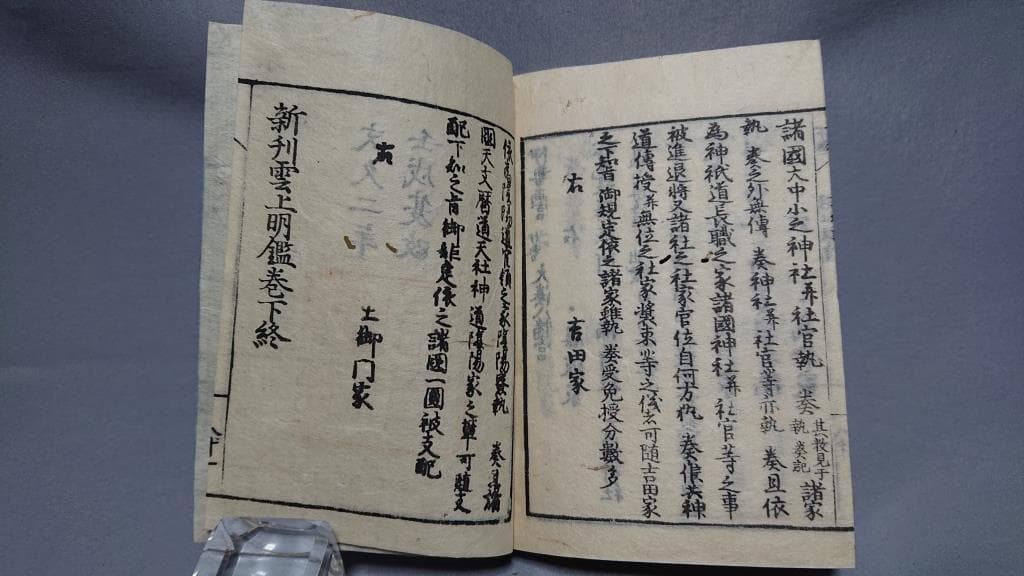 諸國大中小之神社并社官執 奏其数見于執奏記諸家
執 奏之外無傳 奏神社并社官等亦執 奏且依
為神祇道長職之家諸國神社并社官等之事
被進退將又諸社之社家官位自何方仇 奏惟其神
道傳授并無位之社家裝束等之儀者可随吉田家
之下知旨御規定依之諸家雖執 奏受免授分數多
右 吉田家
依為陰陽道管領之家陰陽寮執 奏且諸
國天文暦道天社神道陰陽家之輩可随支
配下知之旨御 依之諸國一圓被支配
右 土御門家
新刊雲上明鑑巻下終
八十一